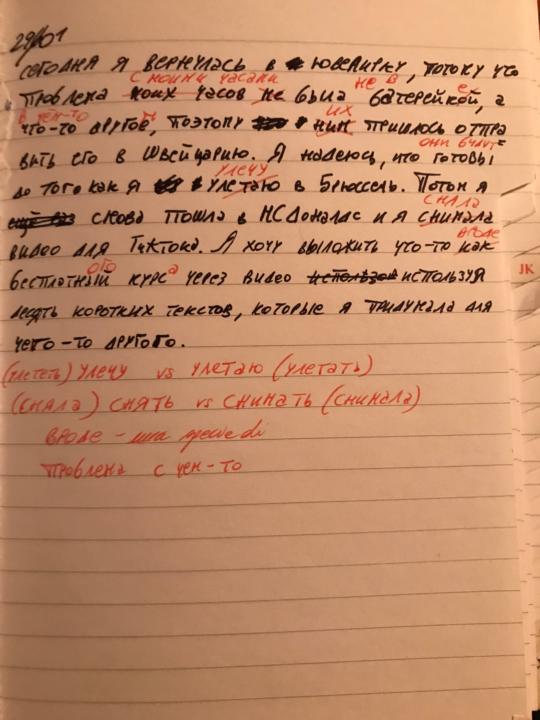 29/01
сегодня я вернулась в ювелирку, потому что
с моими часами не в е
проблема моих часов не была батерейкой, а
в чем-то м их
что-то другой, поэтому ним пришлось отпра
они будут
вить его в Швейцарию. Я надеюсь, что готовы
улечу
до того как я улетаю в Брюссель. Потом я
сняла
снова пошла в МСДоналдс и я снимала
вроде
видео для Тиктока. Я хочу выложить что-то как
ого а JK
бесплатный курс через видео используя
десять коротких текстов, которые я придумала для
чего-то другого.
(улететь) улечу vs улетаю (улетать)
(сняла) снять vs снимать (снимала)
вроде - una specie di
проблема с чем-то